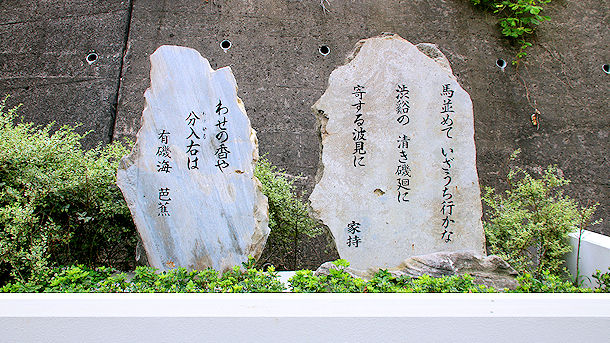 馬並めて いざうち行かな
渋谿の 清き磯廻に
寄する波見に
家持
わせの香や
分入右は
わけいる
有磯海 芭蕉